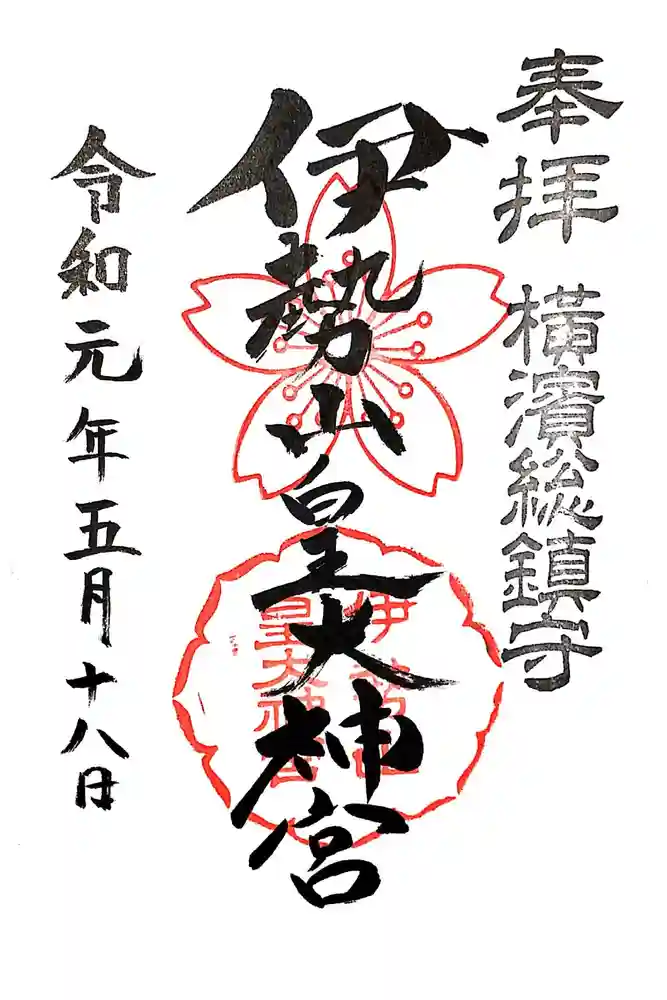 奉拝
横濱総鎮守
伊勢山皇大神宮
伊勢山
皇大神宮
令和元年五月十八日